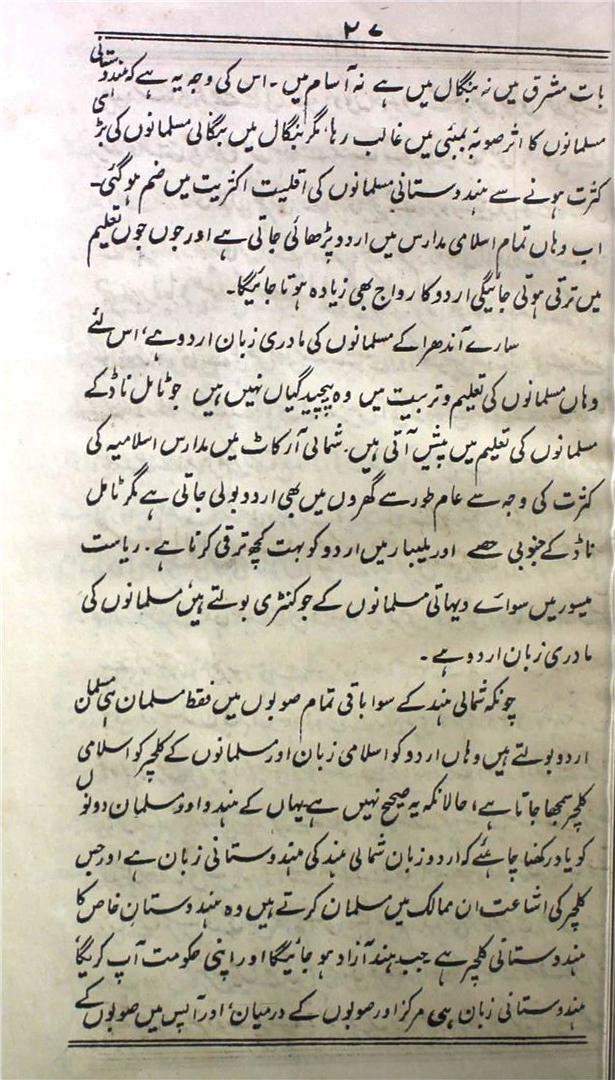 ۲۷
بات مشرق میں نہ بنگال میں ہے نہ آسام میں۔ اس کی وجہ یہ ہے کہ ہندوستانی
مسلمانوں کا اثر صوبۂ بمبئی میں غالب رہا، مگر بنگال میں بنگالی مسلمانوں کی بڑی
کثرت ہونے سے ہندوستانی مسلمانوں کی اقلیت اکثریت میں ضم ہو گئی۔
اب وہاں تمام اسلامی مدارس میں اردو پڑھائی جاتی ہے اور جوں جوں تعلیم
میں ترقی ہوتی جائیگی اردو کا رواج بھی زیادہ ہوتا جائیگا۔
سارے آندھرا کے مسلمانوں کی مادری زبان اردو ہے، اس لئے
وہاں مسلمانوں کی تعلیم و تربیت میں وہ پیچیدگیاں نہیں ہیں جو ٹامل ناڈ کے
مسلمانوں کی تعلیم میں پیش آتی ہیں۔ شمالی آرکاٹ میں مدارس اسلامیہ کی
کثرت کی وجہ سے عام طور سے گھروں میں بھی اردو بولی جاتی ہے مگر ٹامل
ناڈ کے جنوبی حصے اور ملیبار میں اردو کو بہت کچھ ترقی کرنا ہے۔ ریاست
میسور میں سوائے دیہاتی مسلمانوں کے جو کنٹری بولتے ہیں، مسلمانوں کی
مادری زبان اردو ہے۔
چونکہ شمالی ہند کے سوا باقی تمام صوبوں میں فقط مسلمان ہی
اردو بولتے ہیں وہاں اردو کو اسلامی زبان اور مسلمانوں کے کلچر کو اسلامی
کلچر سمجھا جاتا ہے، حالانکہ یہ صحیح نہیں ہے یہاں کے ہندو اور مسلمان دونوں
کو یاد رکھنا چاہئے کہ اردو زبان شمالی ہند کی ہندوستانی زبان ہے اور جس
کلچر کی اشاعت ان ممالک میں مسلمان کرتے ہیں وہ ہندوستانِ خاص کا
ہندوستانی کلچر ہے جب ہند آزاد ہو جائیگا اور اپنی حکومت آپ کریگا،
ہندوستانی زبان ہی مرکز اور صوبوں کے درمیان، اور آپس میں صوبوں کے